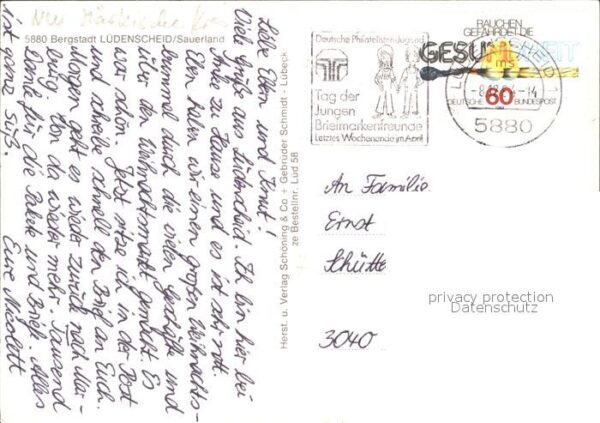 Nur Märkischer Kreis
5880 Bergstadt LÜDENSCHEID/Sauerland
Liebe Eltern und Ernst!
Viele Grüße aus Lüdenscheid. Ich bin hier bei
Anke zu Hause und es ist sehr nett.
Eben haben wir einen großen Weihnachts-
bummel durch die vielen Geschäfte und
über den Weihnachtsmarkt gemacht. Es
war schön. Jetzt sitze ich in der Post
und schreibe schnell den Brief an Euch.
Morgen geht es wieder zurück nach Mar-
burg. Von da wieder mehr. Tausend
Dank für die Pakete und Briefe. Alles
ist ganz süß. Eure Nicolett
Herst. u. Verlag Schöning & Co + Gebrüder Schmidt - Lübeck
ze Bestellnr. Lüd 58
Deutsche Philatelisten-Jugend
Tag der
Jungen
Briefmarkenfreunde
Letztes Wochenende im April
RAUCHEN
GEFÄHRDET DIE
GESUNDHEIT
60
DEUTSCHE BUNDESPOST
LÜDENSCHEID
ms
-14
5880
An Familie
Ernst
Schütte
3040
privacy protection
Datenschutz